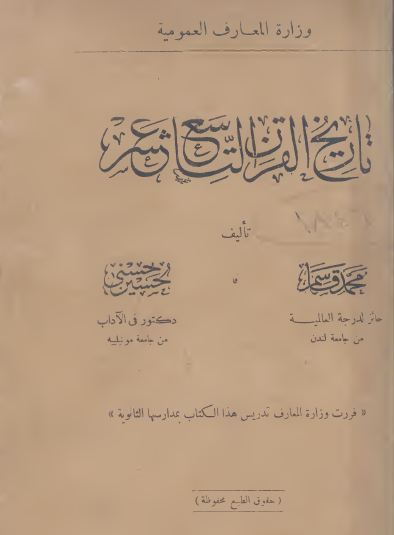 وزارة المعارف العمومية
تاريخ القرن التاسع عشر
تأليف
محمد قاسم و حسين حسنى
حائز لدرجة العالمية دكتور فى الآداب
من جامعة لندن من جامعة مونبلييه
« قررت وزارة المعارف تدريس هذا الكتاب بمدارسها الثانوية »
( حقوق الطبع محفوظة )